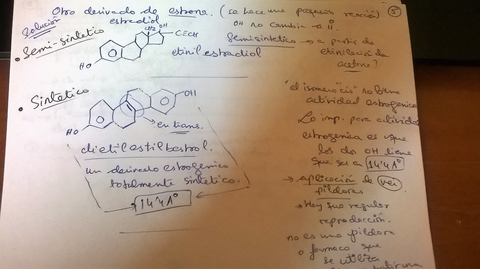 Otro derivado de estrona. (se hace una pequeña reacción) 5
Solución
estradiol
OH no cambia a O
• Semi-sintético
CH3 OH
C≡CH
HO
etinil estradiol
Semisintético → a partir de
etinilación de
estrona?
• Sintético
OH
HO
en trans.
dietilestilbestrol.
un derivado estrogénico
totalmente sintético.
→ 14'4Aº
El isomero "cis" no tiene
actividad estrogénica
Lo imp. para actividad
estrogénica es que
los dos OH tienen
que ser a 14'4Aº
→ aplicación de
píldoras
→ Hay que regular
reproducción.
no es una píldora
o fármaco que
se utiliza